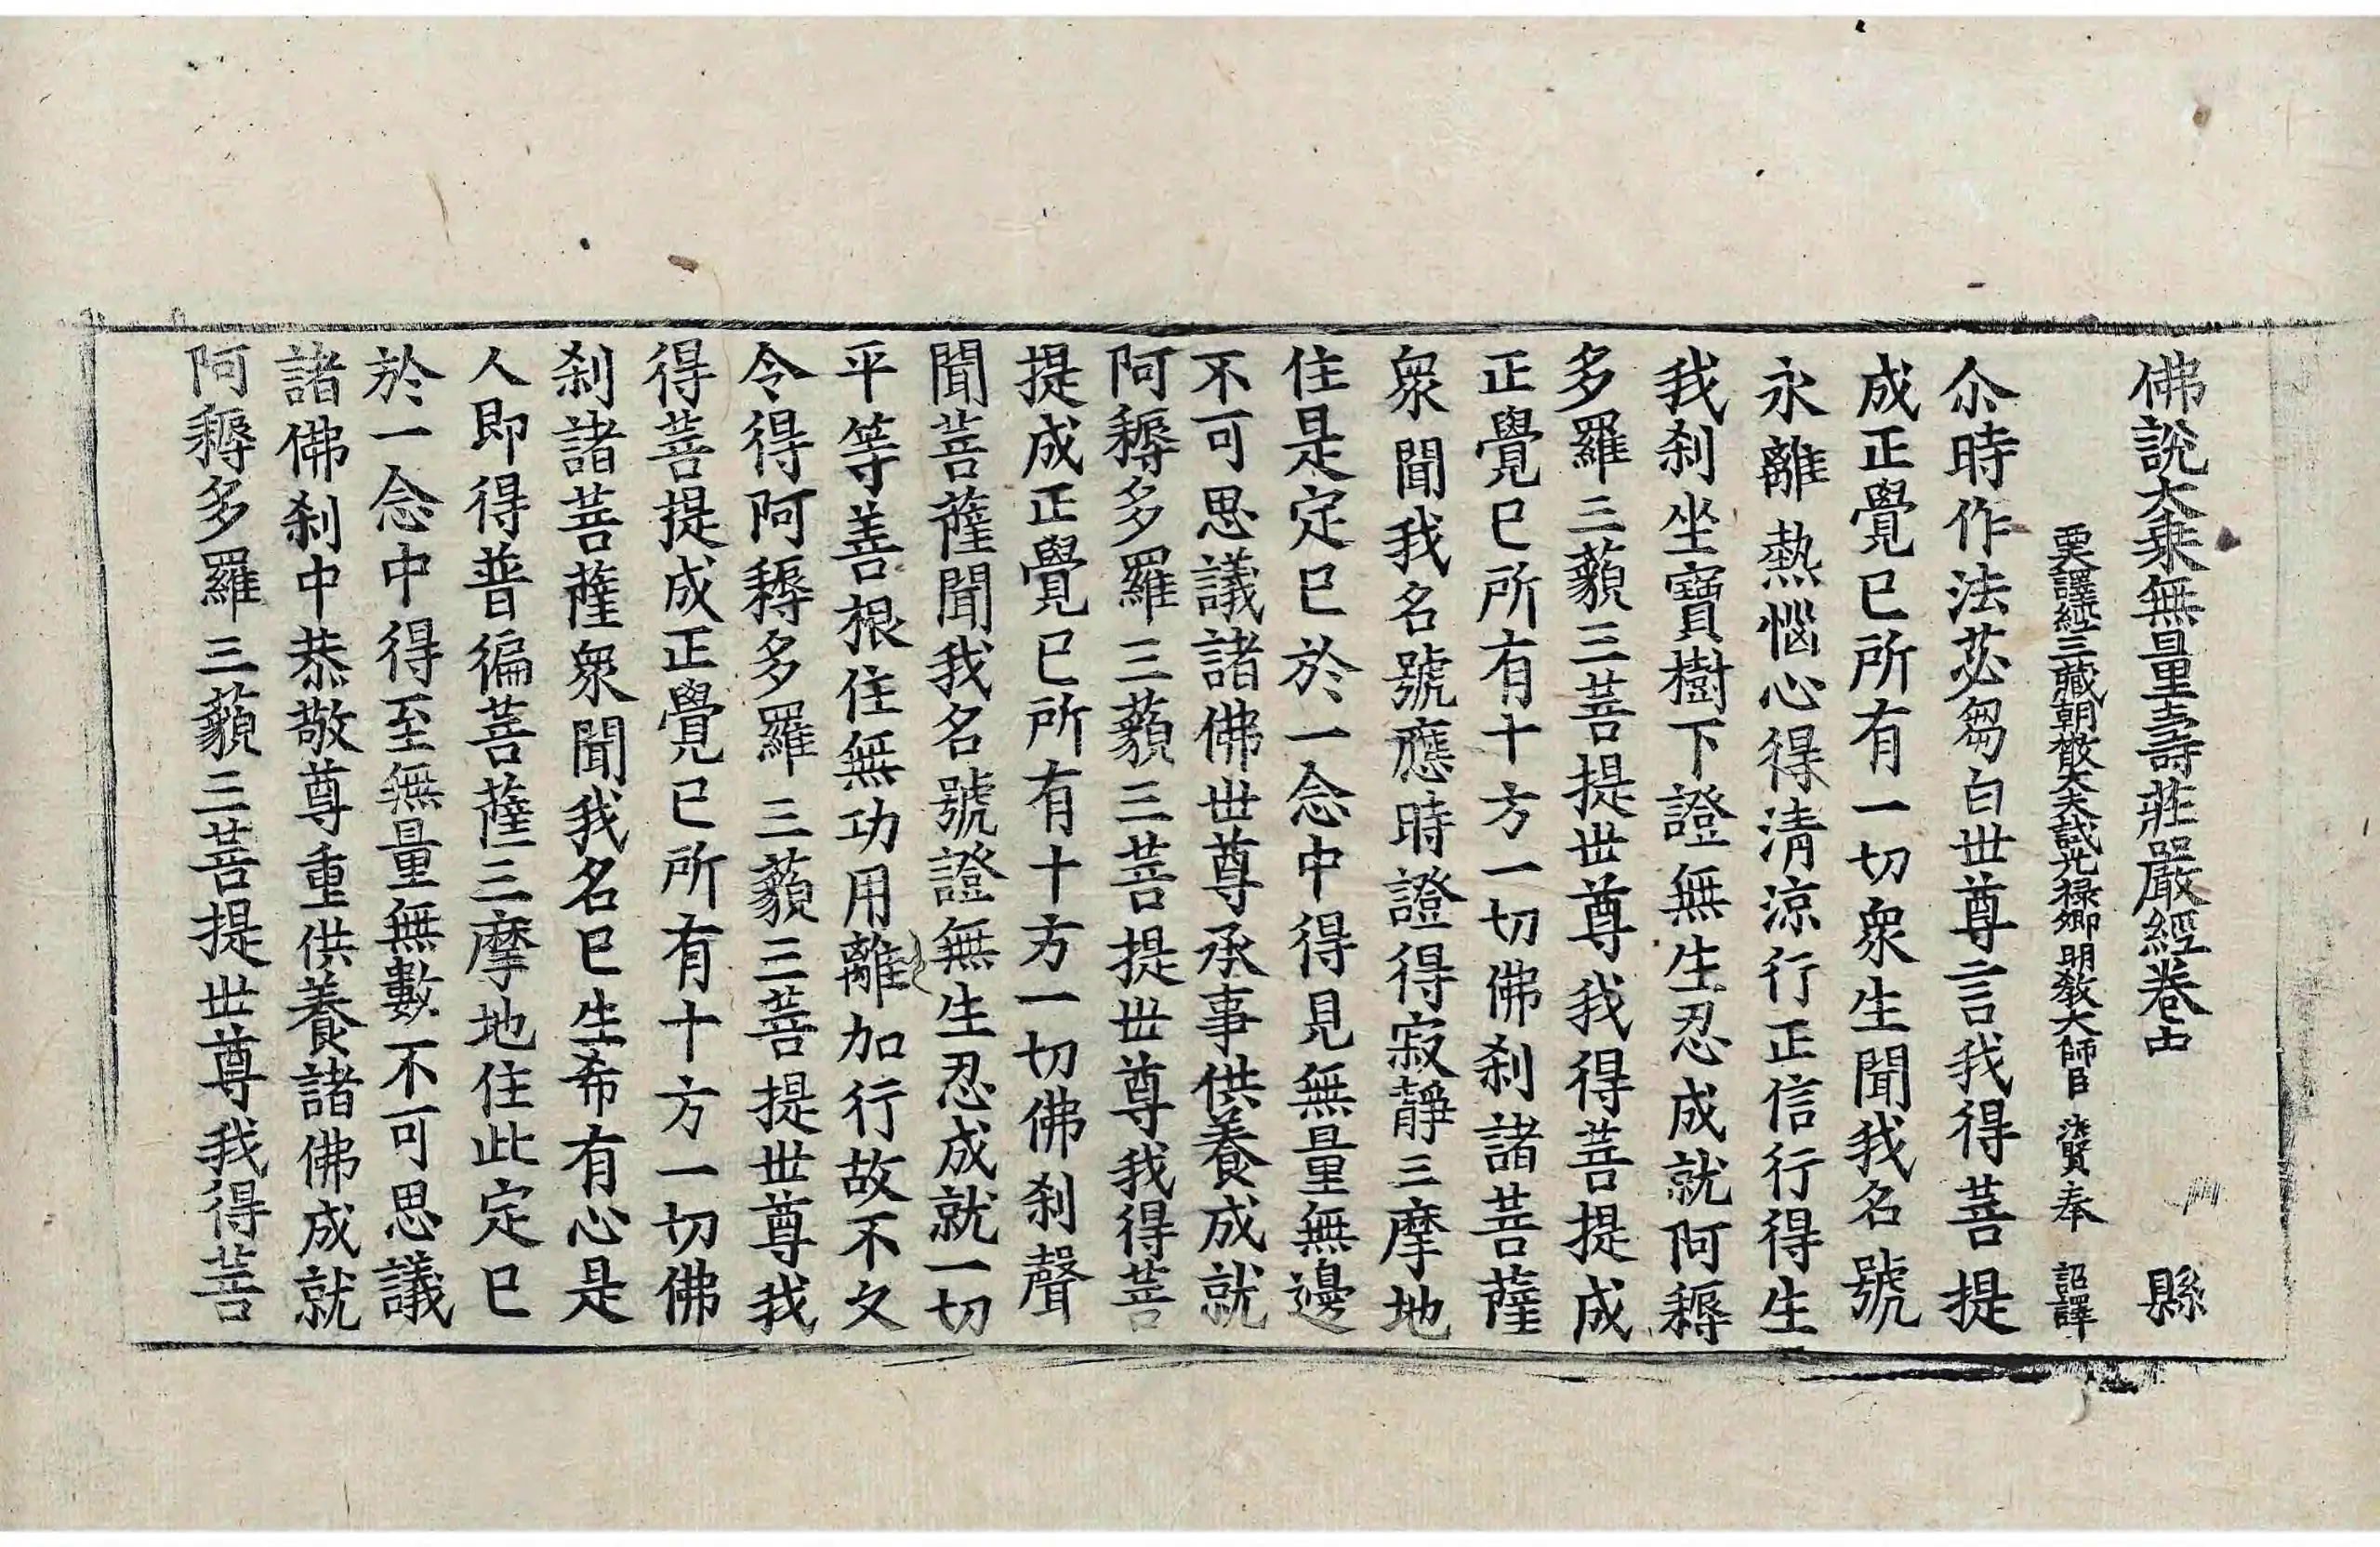 佛說大乘無量壽莊嚴經卷中 縣
西天譯經三藏朝散大夫試光祿卿明教大師臣 法賢奉 詔譯
尒時作法苾芻白世尊言我得菩提
成正覺已所有一切衆生聞我名號
永離熱惱心得清涼行正信行得生
我刹坐寶樹下證無生忍成就阿耨
多羅三藐三菩提世尊我得菩提成
正覺已所有十方一切佛刹諸菩薩
衆聞我名號應時證得寂靜三摩地
住是定已於一念中得見無量無邊
不可思議諸佛世尊承事供養成就
阿耨多羅三藐三菩提世尊我得菩
提成正覺已所有十方一切佛刹聲
聞菩薩聞我名號證無生忍成就一切
平等善根住無功用離加行故不久
令得阿耨多羅三藐三菩提世尊我
得菩提成正覺已所有十方一切佛
刹諸菩薩衆聞我名已生希有心是
人即得普徧菩薩三摩地住此定已
於一念中得至無量無數不可思議
諸佛刹中恭敬尊重供養諸佛成就
阿耨多羅三藐三菩提世尊我得菩